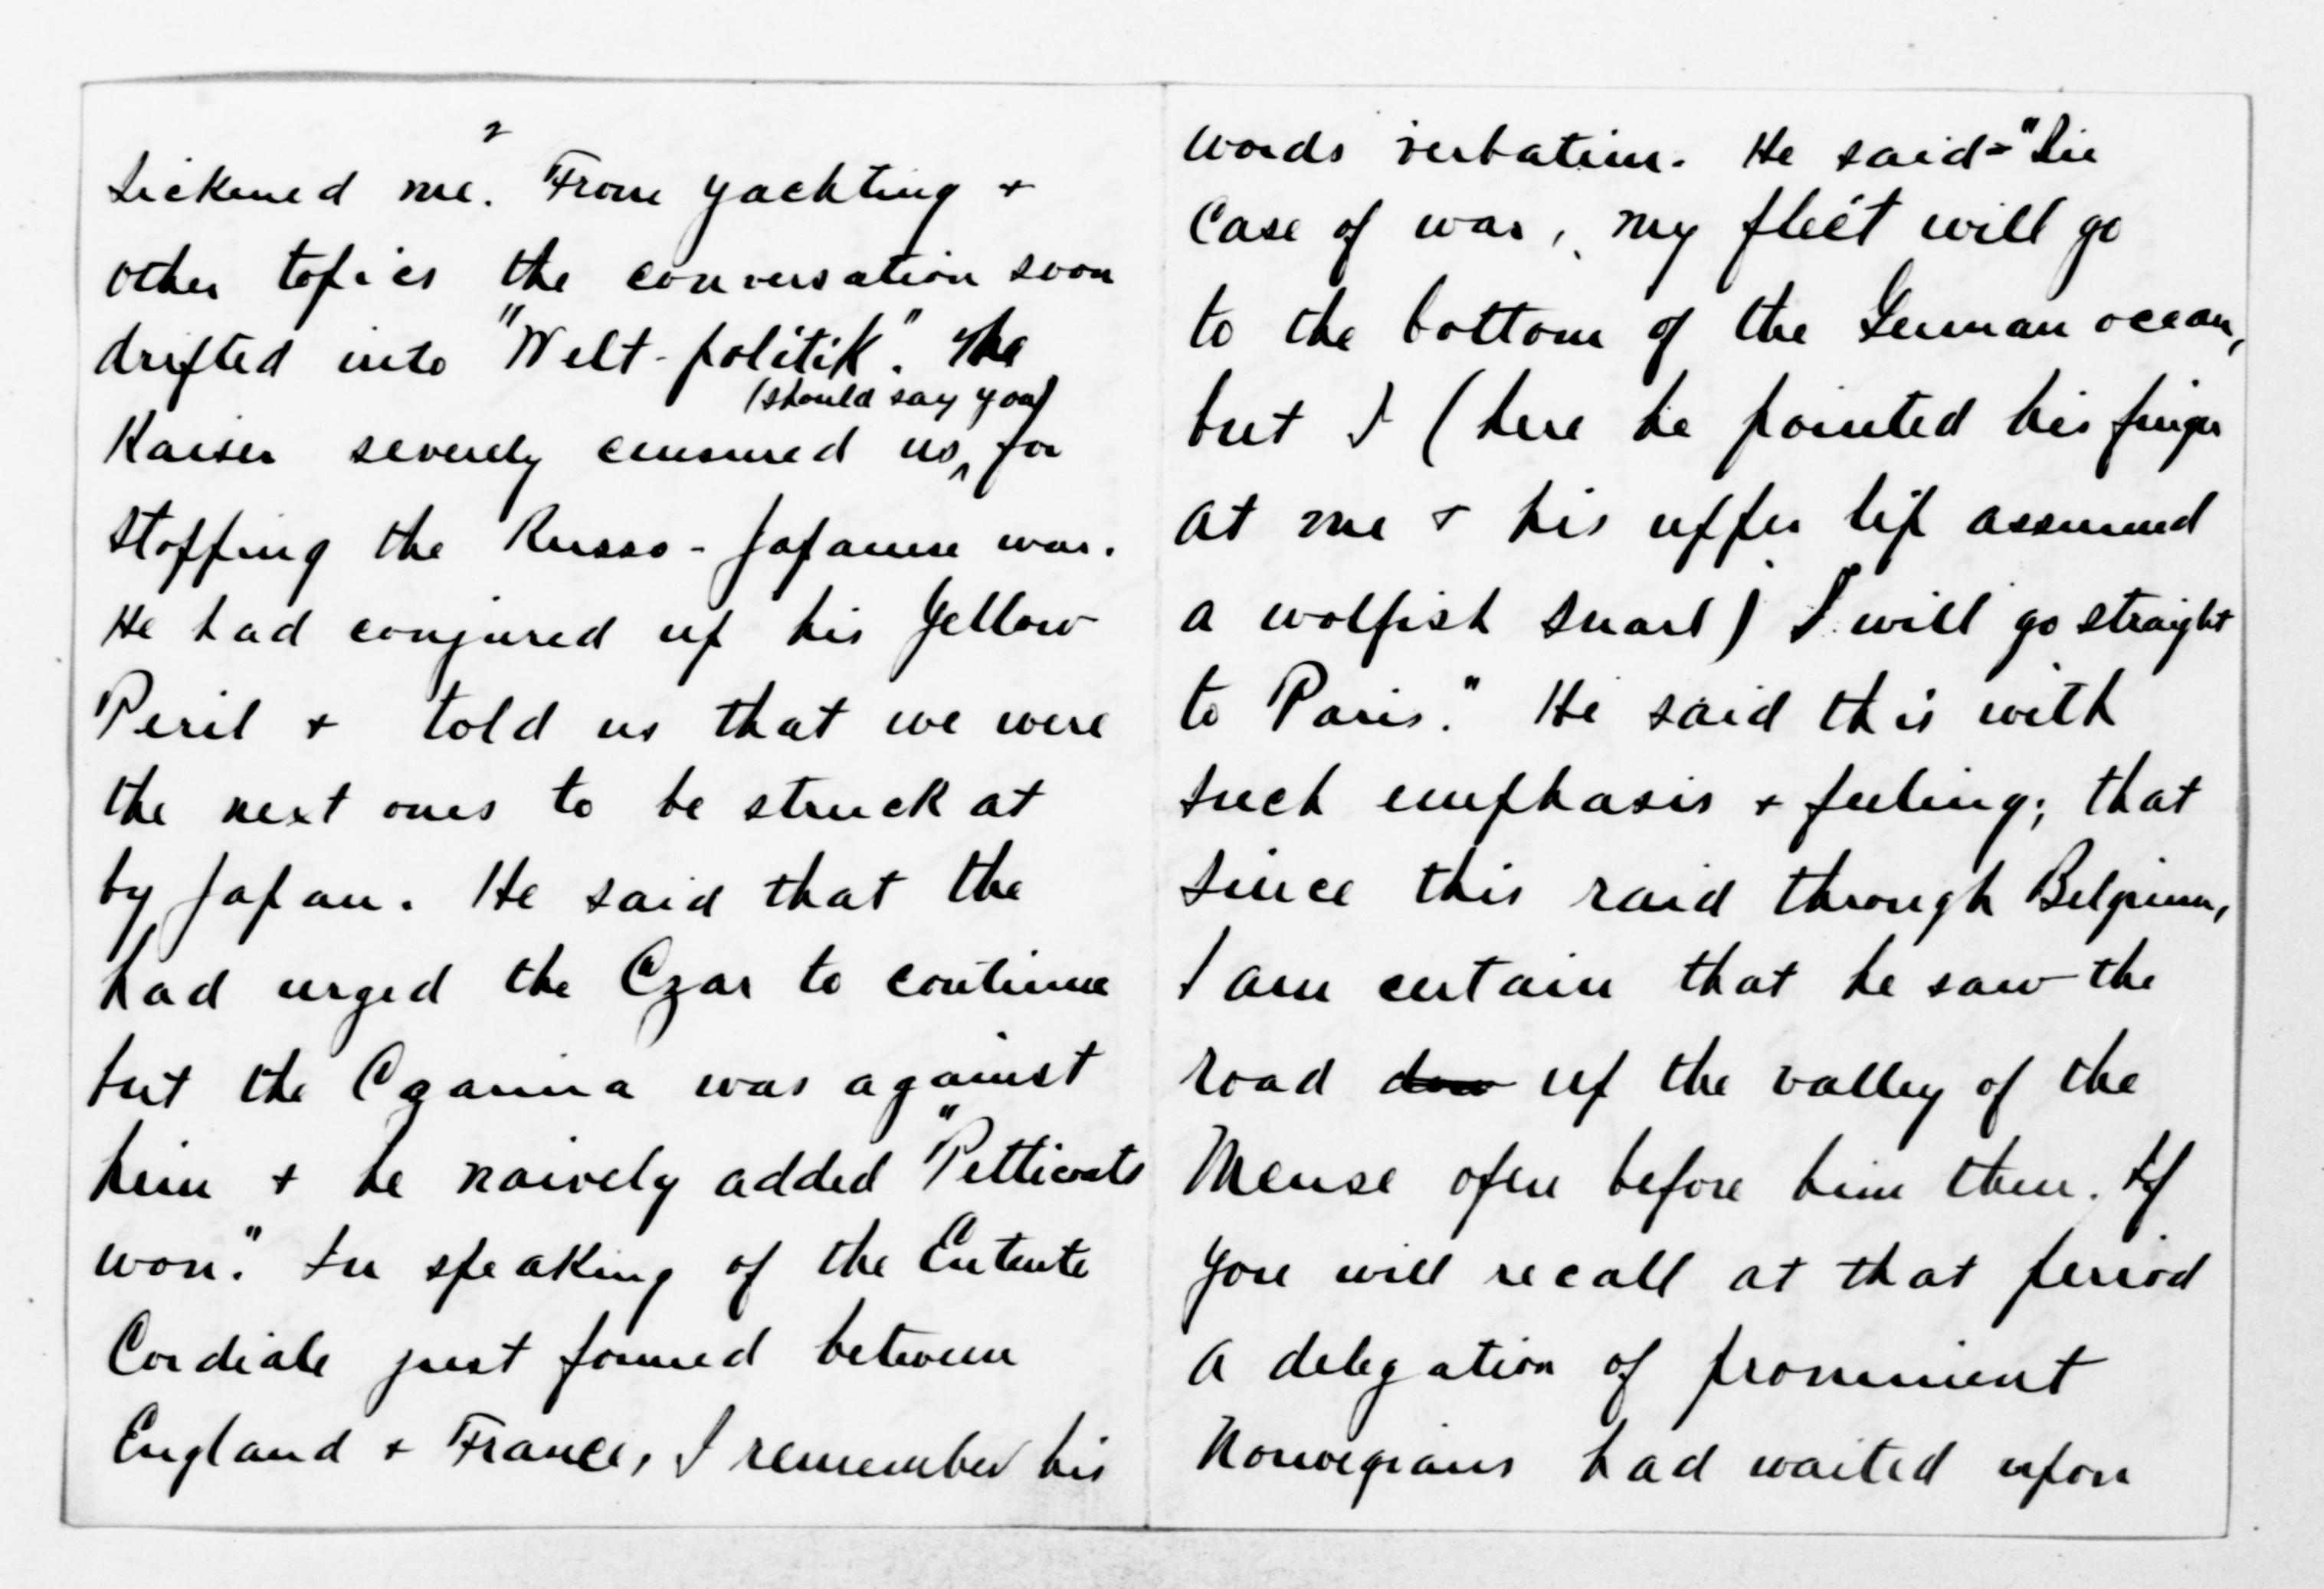 2
sickened me. From yachting +
other topics the conversation soon
drifted into "Welt-politik". The
(should say you)
Kaiser severely censured us, for
stopping the Russo-Japanese war.
He had conjured up his Yellow
Peril + told us that we were
the next ones to be struck at
by Japan. He said that the
had urged the Czar to continue
but the Czarina was against
him + he naively added "Petticoats
won." In speaking of the Entente
Cordiale just formed between
England + France, I remember his
words verbatim. He said = "In
case of war, my fleet will go
to the bottom of the German ocean,
but I (here he pointed his finger
at me + his upper lip assumed
a wolfish snarl) I will go straight
to Paris." He said this with
such emphasis + feeling; that
since this raid through Belgium,
I am certain that he saw the
road dow up the valley of the
Meuse open before him then. If
you will recall at that period
a delegation of prominent
Norwegians had waited upon